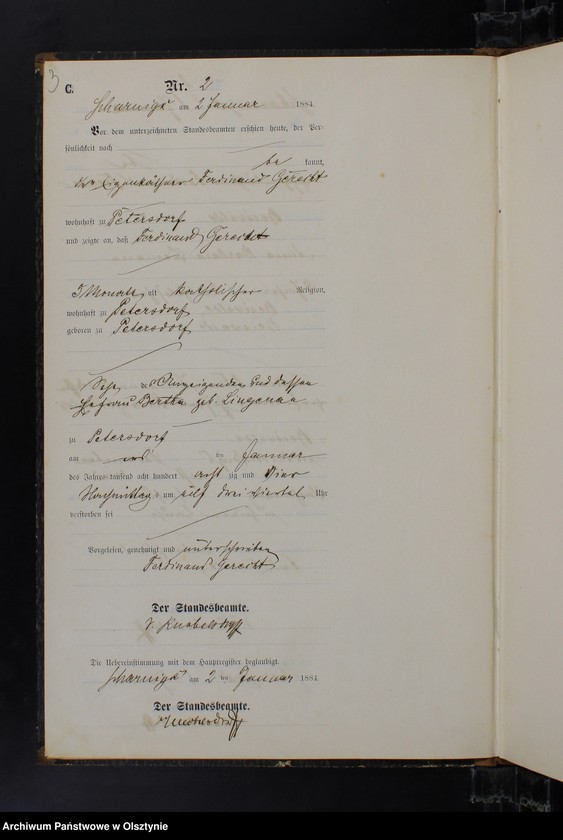 3
C.
Nr. 2
Scharnigk am 2 Januar 1884.
Vor dem unterzeichneten Standesbeamten erschien heute, der Per-
sönlichkeit nach
be kannt,
der Eigenkäthner Ferdinand Gerecht
wohnhaft zu Petersdorf
und zeigte an, daß Ferdinand Gerecht
3 Monate, alt katholischer Religion,
wohnhaft zu Petersdorf
geboren zu Petersdorf
Sohn des Anzeigenden und dessen
Ehefrau Bertha geb. Lingenau
zu Petersdorf
am ten Januar
des Jahres tausend acht hundert acht zig und vier
Nachmittags um eilf drei viertel Uhr
verstorben sei
Vorgelesen, genehmigt und unterschrieben
Ferdinand Gerecht
Der Standesbeamte.
v. Knobelsdorff
Die Uebereinstimmung mit dem Hauptregister beglaubigt.
Scharnigk am 2 ten Januar 1884
Der Standesbeamte.
Knobelsdorff
Archiwum Państwowe w Olsztynie